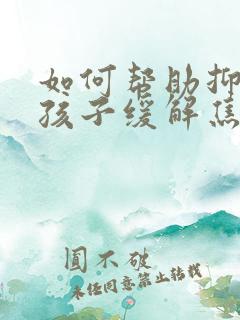 如何帮助抑
孩子缓解焦
圆不破
未经同意禁止转载